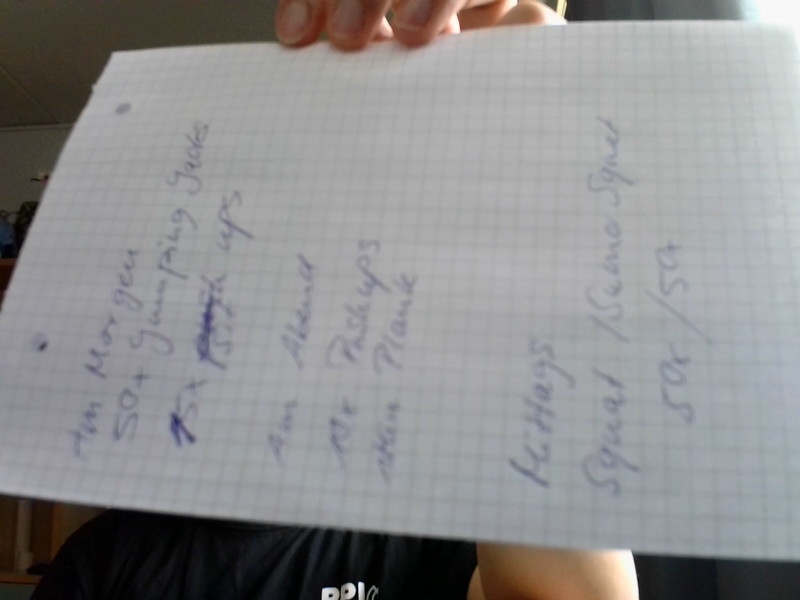 Am Morgen
50x Jumping Jacks
15x Sit ups
Am Abend
10x Pushups
1min Plank
Mittags
Squat / Sumo Squat
50x / 50x